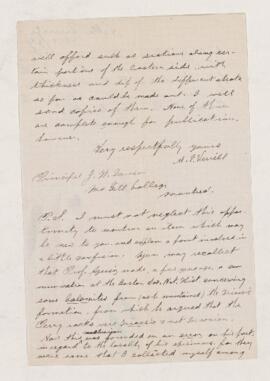 will afford such as sections along cer-
tain portions of the Eastern side, with
thickness and dip of the different strata
so far as could be made out. I will
send copies of them. None of them
are complete enough for publication,
however.
Very respectfully yours
A. E. Verrill
Principal J. W. Dawson
McGill College,
Montreal.
P.S. I must not neglect this oppor-
tunity to mention an item which may
be new to you and explain a point involved in
a little confusion. You may recollect
that Prof. Agassiz made, a few years ago, a com-
munication at the Boston Soc. Nat. Hist. concerning
some from
formation, from which he argued that the
rocks were Jurassic & not Devonian.
Now this was founded on an error on his part,
in regard to the locality of his specimens for they
were some that I collected myself among